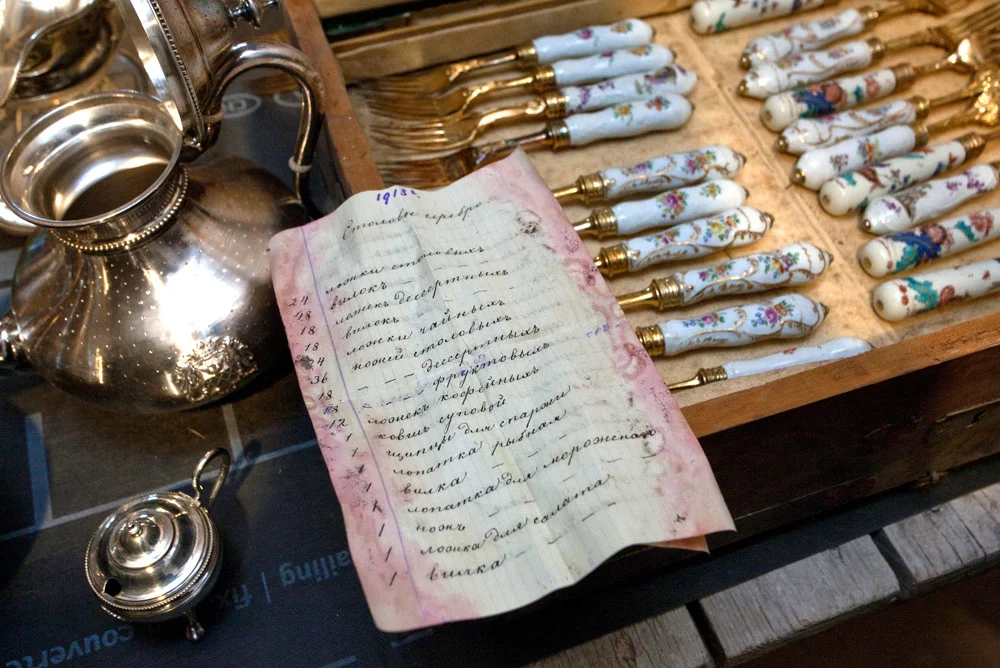 Столовое серебро.
24 ложки столовыхъ
вилокъ — —
18 ложекъ десертныхъ
18 вилокъ — —
24 ложки чайныхъ
36 ножей столовыхъ
18 — — десертныхъ
18 — — фруктовыхъ
12 ложекъ кофейныхъ
1 ковшъ суповой
1 щипцы для спаржи
1 лопатка рыбная
1 вилка — —
1 лопатка для мороженаго
1 ножъ — —
1 ложка для салата
1 вилка — —